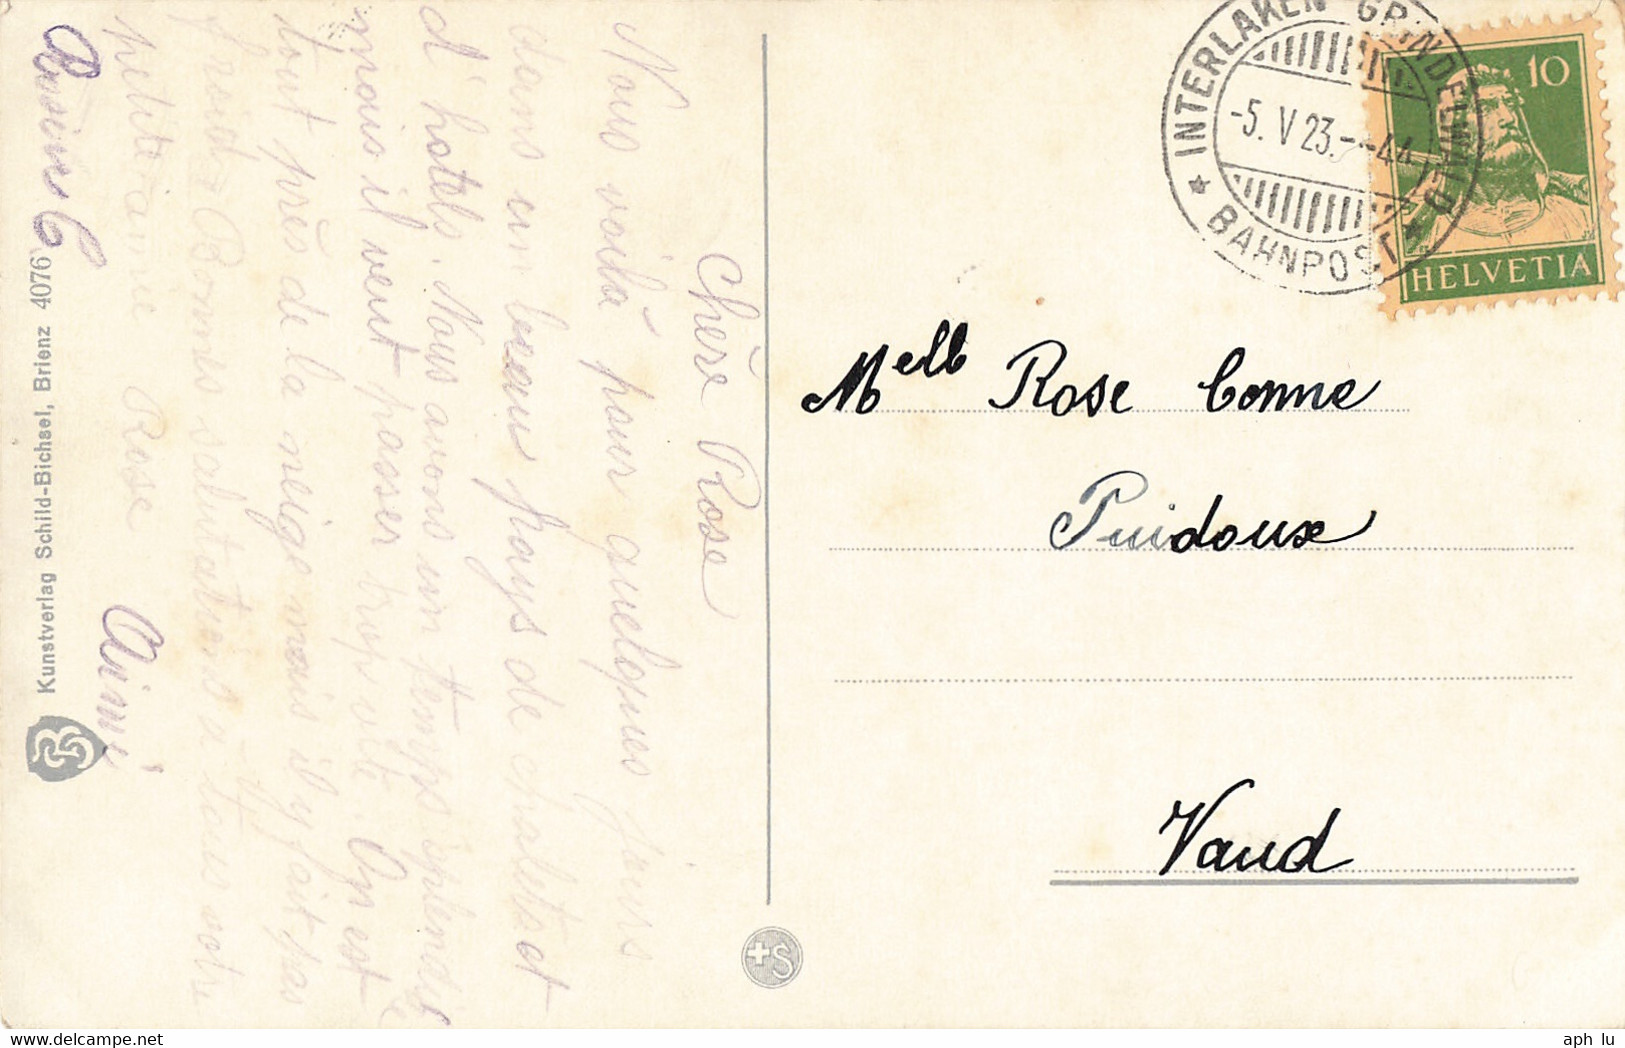 Chère Rose
Nous voilà pour quelques jours
dans un beau pays de chalets et
d'hotels. Nous avons un temps splendide
mais il veut passer trop vite. On est
tout près de la neige mais il y fait pas
froid. Bonnes salutations à tous votre
petite amie Rose
Aimé
Kunstverlag Schild-Bichsel, Brienz 4076
INTERLAKEN GRINDELWALD
-5. V 23.--44
BAHNPOST
10
HELVETIA
Melle Rose Conne
Puidoux
Vaud
+S
aph lu